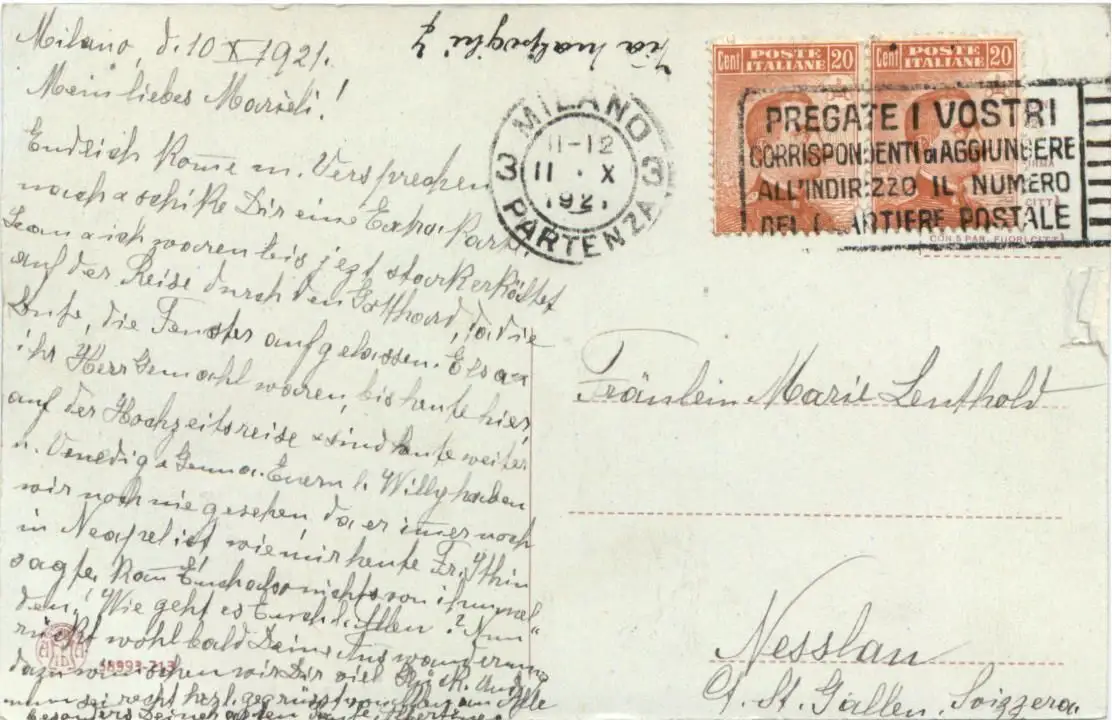 Milano, d. 10 X 1921.
Via Malpighi 7
Mein liebes Marieli!
Endlich kom̅e m. Versprechen
nach & schike Dir eine Extra-Karte.
& ich waren bis jezt stark erkältet
auf der Reise durch den Gotthard, da die
Leute, die Fenster aufgelassen. Elsa &
ihr Herr Gemahl waren, bis heute hier,
auf der Hochzeitsreise & sind heute weiter
n. Venedig & Genua. Euern l. Willy haben
wir noch nie gesehen, da er im̅er noch
in Neapel ist, wie mir heute Fr.
sagte. Kan̅ Euch also nichts von ihm mel-
den. Wie geht es Euch l. Allen? Nun
rückt wohl bald Deine Auswanderung
dazu wünschen wir Dir viel Glück. Und
nun sei recht herzl. gegrüsst von Allen an Alle
besonders Deiner alten Tante
POSTE ITALIANE
Cent 20
POSTE ITALIANE
Cent 20
MILANO
3 3
11-12
11 · X
1921
PARTENZA
PREGATE I VOSTRI
CORRISPONDENTI DI AGGIUNGERE
ALL'INDIRIZZO IL NUMERO
DEL QUARTIERE POSTALE
CON 5 PAR. FUORI CITTÀ
Fräulein Marie Leuthold
Nesslau
Ct. St. Gallen, Svizzera.